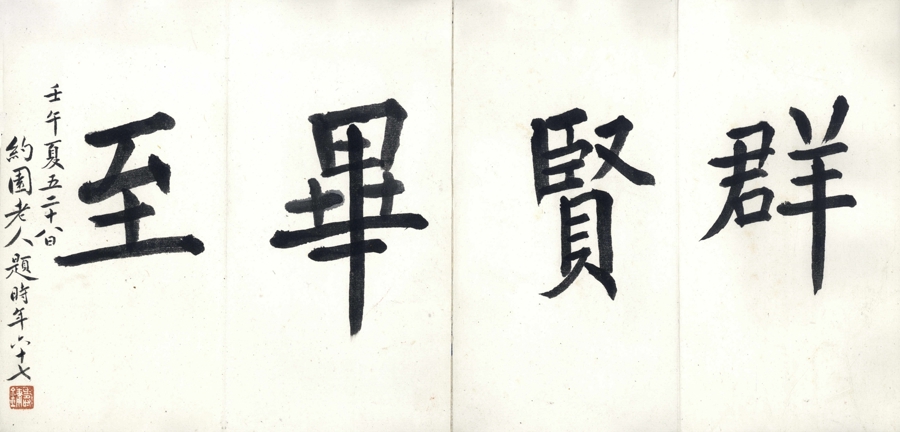 群賢畢至
壬午夏五二十八日
約園老人題時年六十七